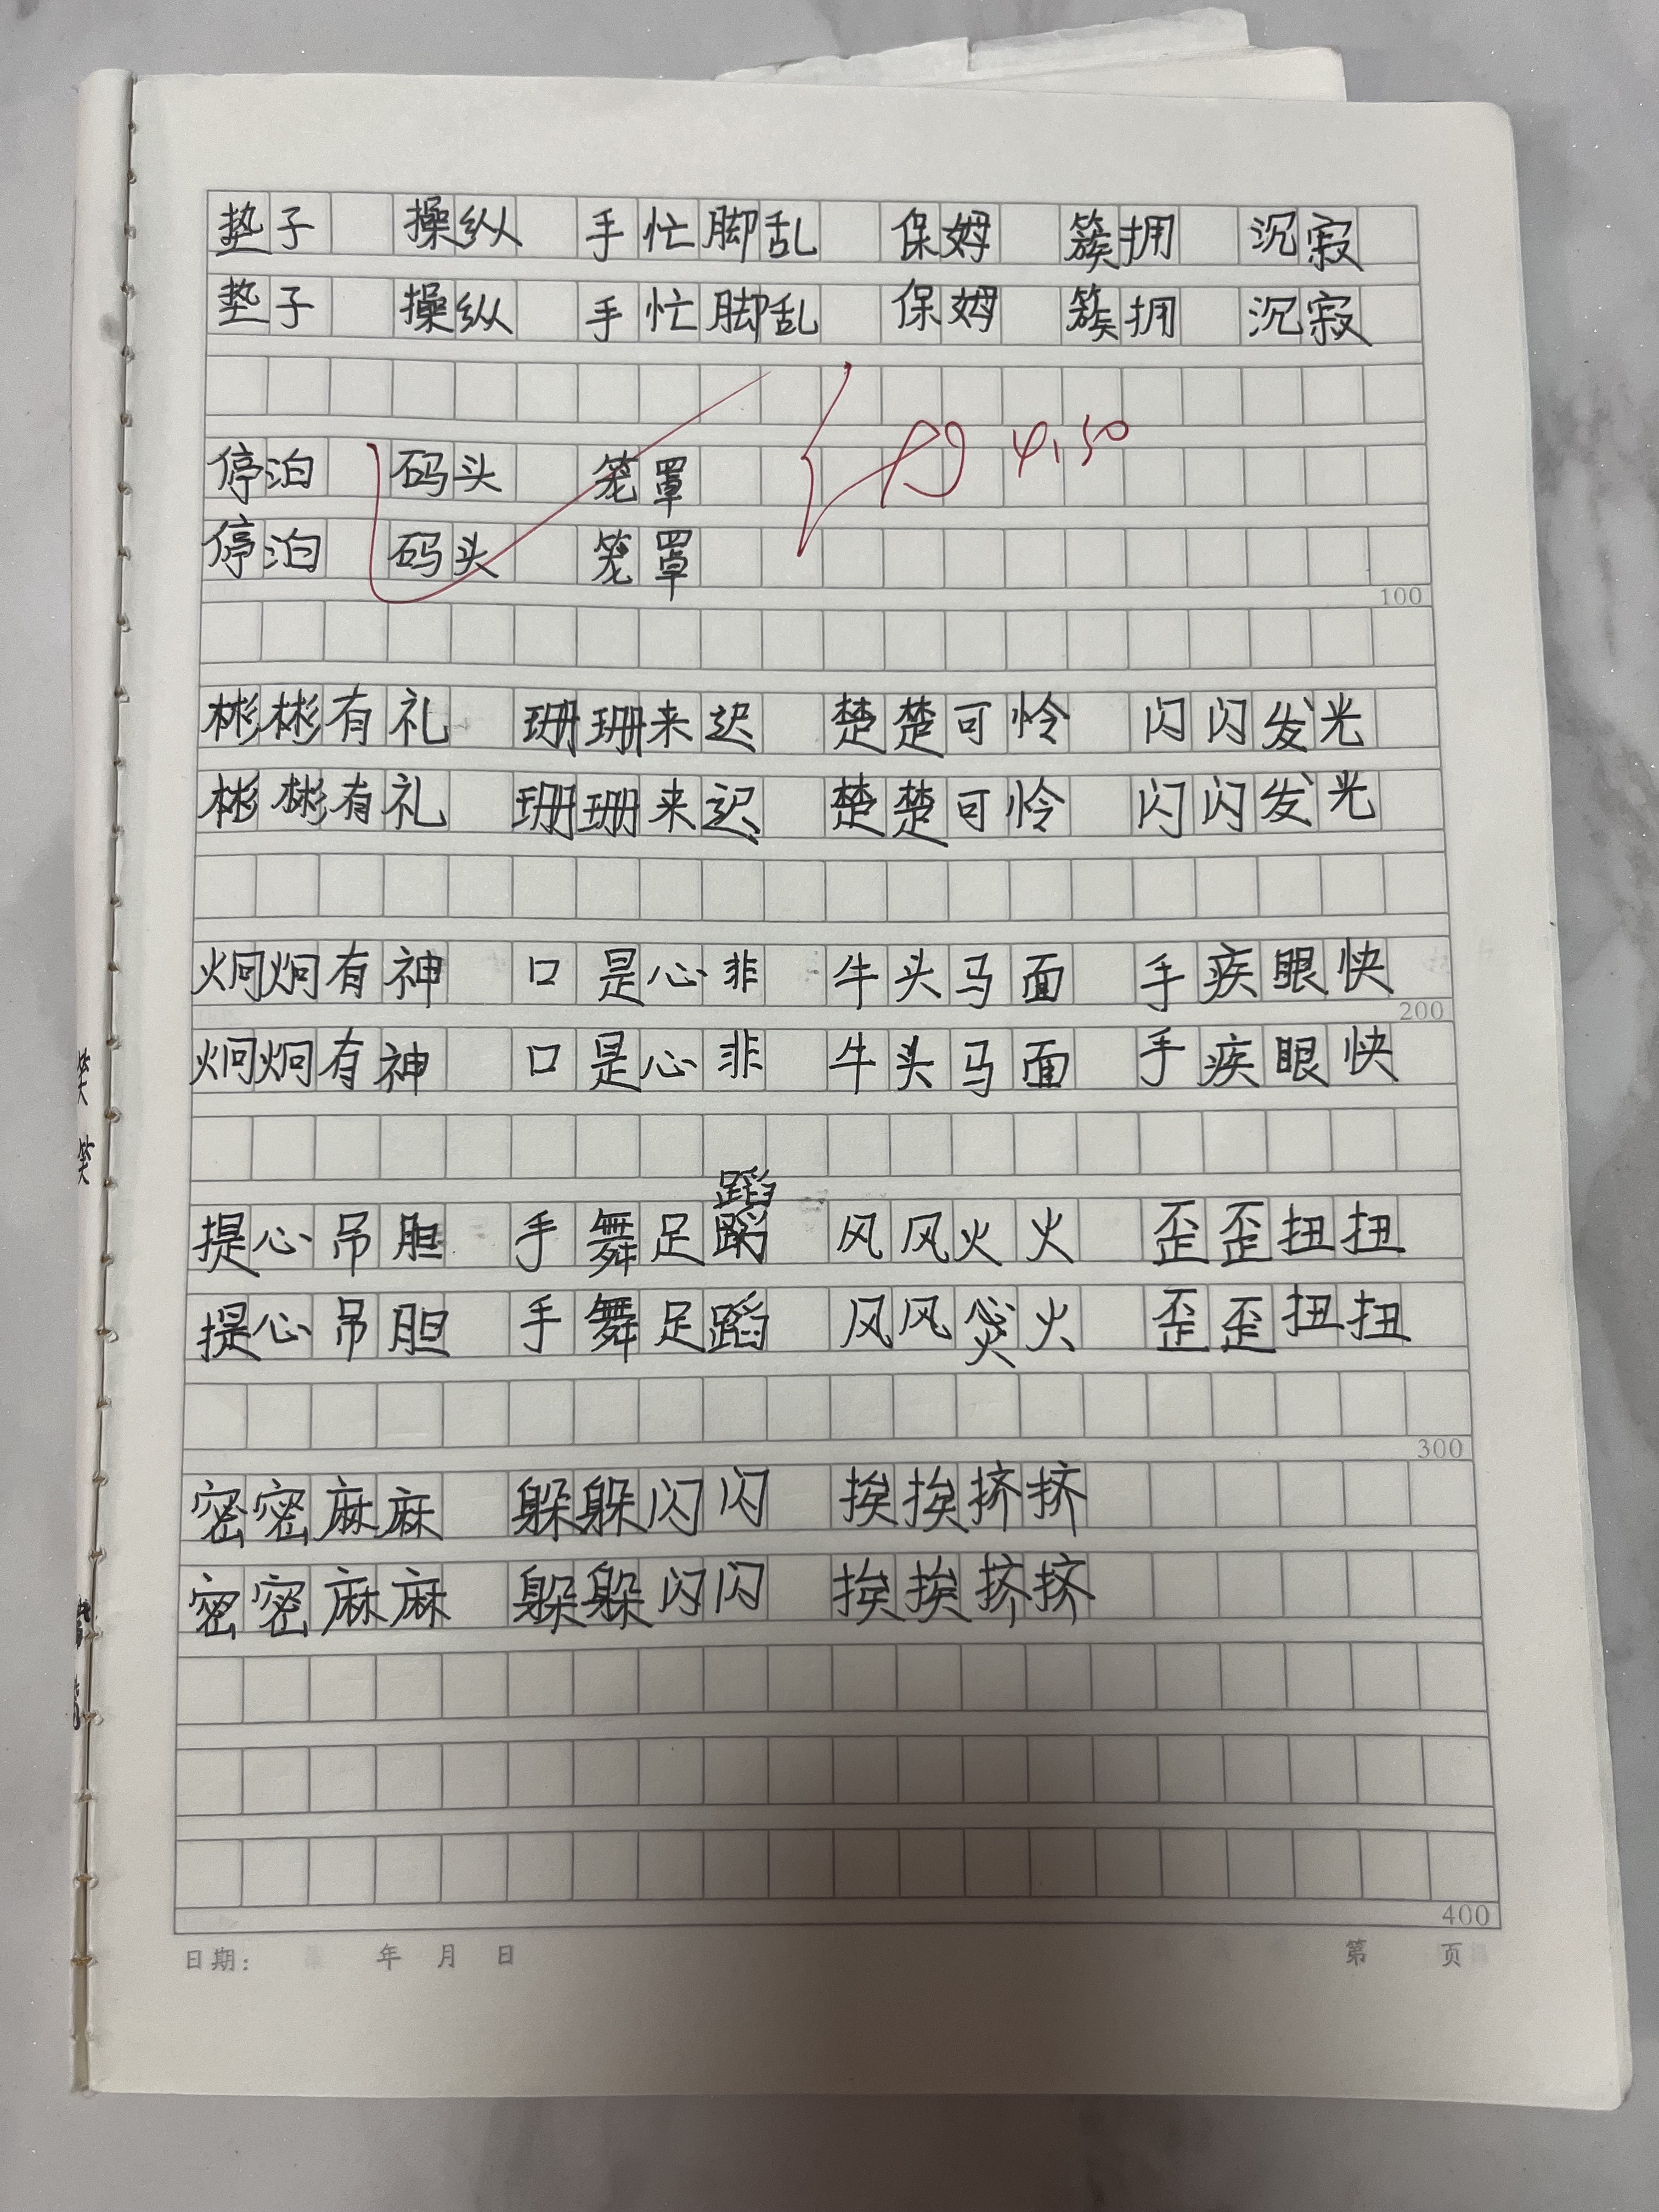 垫子 操纵 手忙脚乱 保姆 簇拥 沉寂
垫子 操纵 手忙脚乱 保姆 簇拥 沉寂
停泊 码头 笼罩
停泊 码头 笼罩
100
彬彬有礼 珊珊来迟 楚楚可怜 闪闪发光
彬彬有礼 珊珊来迟 楚楚可怜 闪闪发光
炯炯有神 口是心非 牛头马面 手疾眼快
200
炯炯有神 口是心非 牛头马面 手疾眼快
蹈
提心吊胆 手舞足 风风火火 歪歪扭扭
提心吊胆 手舞足蹈 风风火火 歪歪扭扭
300
密密麻麻 躲躲闪闪 挨挨挤挤
密密麻麻 躲躲闪闪 挨挨挤挤
400
日期: 年 月 日 第 页